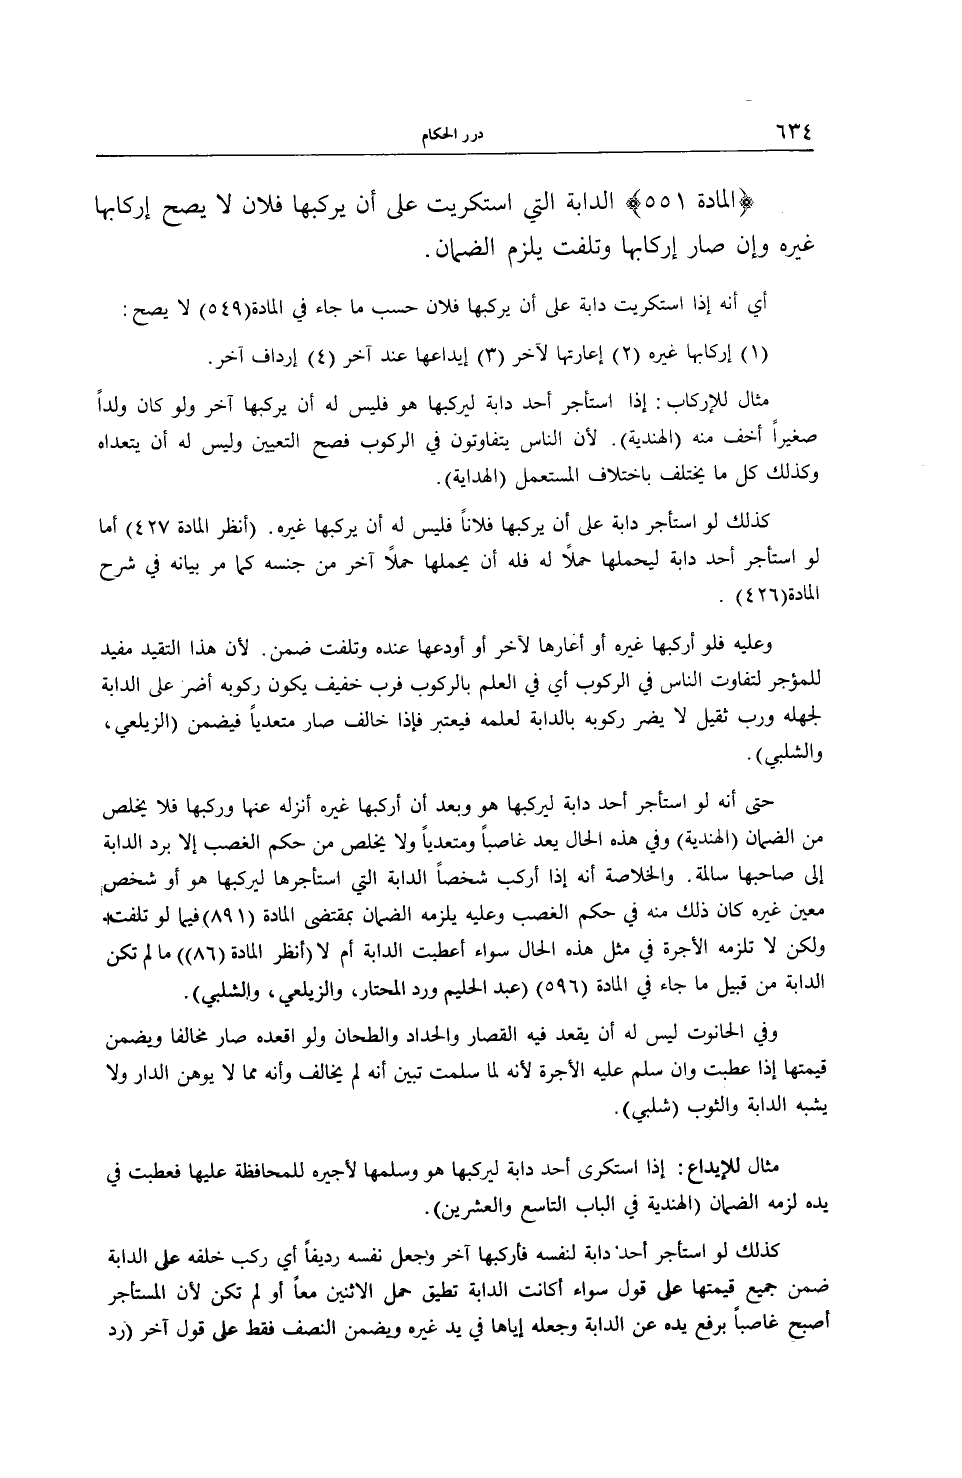 ٦٣٤
درر الحكام
﴿المادة ٥٥١﴾ الدابة التي استكريت على أن يركبها فلان لا يصح إركابها
غيره وإن صار إركابها وتلفت يلزم الضمان.
أي أنه إذا استكريت دابة على أن يركبها فلان حسب ما جاء في المادة(٥٤٩) لا يصح:
(١) إركابها غيره (٢) إعارتها لآخر (٣) إيداعها عند آخر (٤) إرداف آخر.
مثال للإركاب: إذا استأجر أحد دابة ليركبها هو فليس له أن يركبها آخر ولو كان ولداً
صغيراً أخف منه (الهندية). لأن الناس يتفاوتون في الركوب فصح التعيين وليس له أن يتعداه
وكذلك كل ما يختلف باختلاف المستعمل (الهداية).
كذلك لو استأجر دابة على أن يركبها فلاناً فليس له أن يركبها غيره. (أنظر المادة ٤٢٧) أما
لو استأجر أحد دابة ليحملها حملًا له فله أن يحملها حملًا آخر من جنسه كما مر بيانه في شرح
المادة(٤٢٦) .
وعليه فلو أركبها غيره أو أغارها لآخر أو أودعها عنده وتلفت ضمن. لأن هذا التقيد مفيد
للمؤجر لتفاوت الناس في الركوب أي في العلم بالركوب فرب خفيف يكون ركوبه أضر على الدابة
لجهله ورب ثقيل لا يضر ركوبه بالدابة لعلمه فيعتبر فإذا خالف صار متعدياً فيضمن (الزيلعي،
والشلبي).
حتى أنه لو استأجر أحد دابة ليركبها هو وبعد أن أركبها غيره أنزله عنها وركبها فلا يخلص
من الضمان (الهندية) وفي هذه الحال يعد غاصباً ومتعدياً ولا يخلص من حكم الغصب إلا برد الدابة
إلى صاحبها سالمة. والخلاصة أنه إذا أركب شخصاً الدابة التي استأجرها ليركبها هو أو شخص
معين غيره كان ذلك منه في حكم الغصب وعليه يلزمه الضمان بمقتضى المادة (٨٩١)فيما لو تلفت
ولكن لا تلزمه الأجرة في مثل هذه الحال سواء أعطبت الدابة أم لا (أنظر المادة (٨٦)) ما لم تكن
الدابة من قبيل ما جاء في المادة (٥٩٦) (عبد الحليم ورد المحتار، والزيلعي، والشلبي).
وفي الحانوت ليس له أن يقعد فيه القصار والحداد والطحان ولو اقعده صار مخالفا ويضمن
قيمتها إذا عطبت وان سلم عليه الأجرة لأنه لما سلمت تبين أنه لم يخالف وأنه مما لا يوهن الدار ولا
يشبه الدابة والثوب (شلبي).
مثال للإيداع: إذا استكرى أحد دابة ليركبها هو وسلمها لأجيره للمحافظة عليها فعطبت في
يده لزمه الضمان (الهندية في الباب التاسع والعشرين).
كذلك لو استأجر أحد دابة لنفسه فأركبها آخر وجعل نفسه رديفاً أي ركب خلفه على الدابة
ضمن جميع قيمتها على قول سواء أكانت الدابة تطيق حمل الاثنين معاً أو لم تكن لأن المستأجر
أصبح غاصباً برفع يده عن الدابة وجعله إياها في يد غيره ويضمن النصف فقط على قول آخر (رد